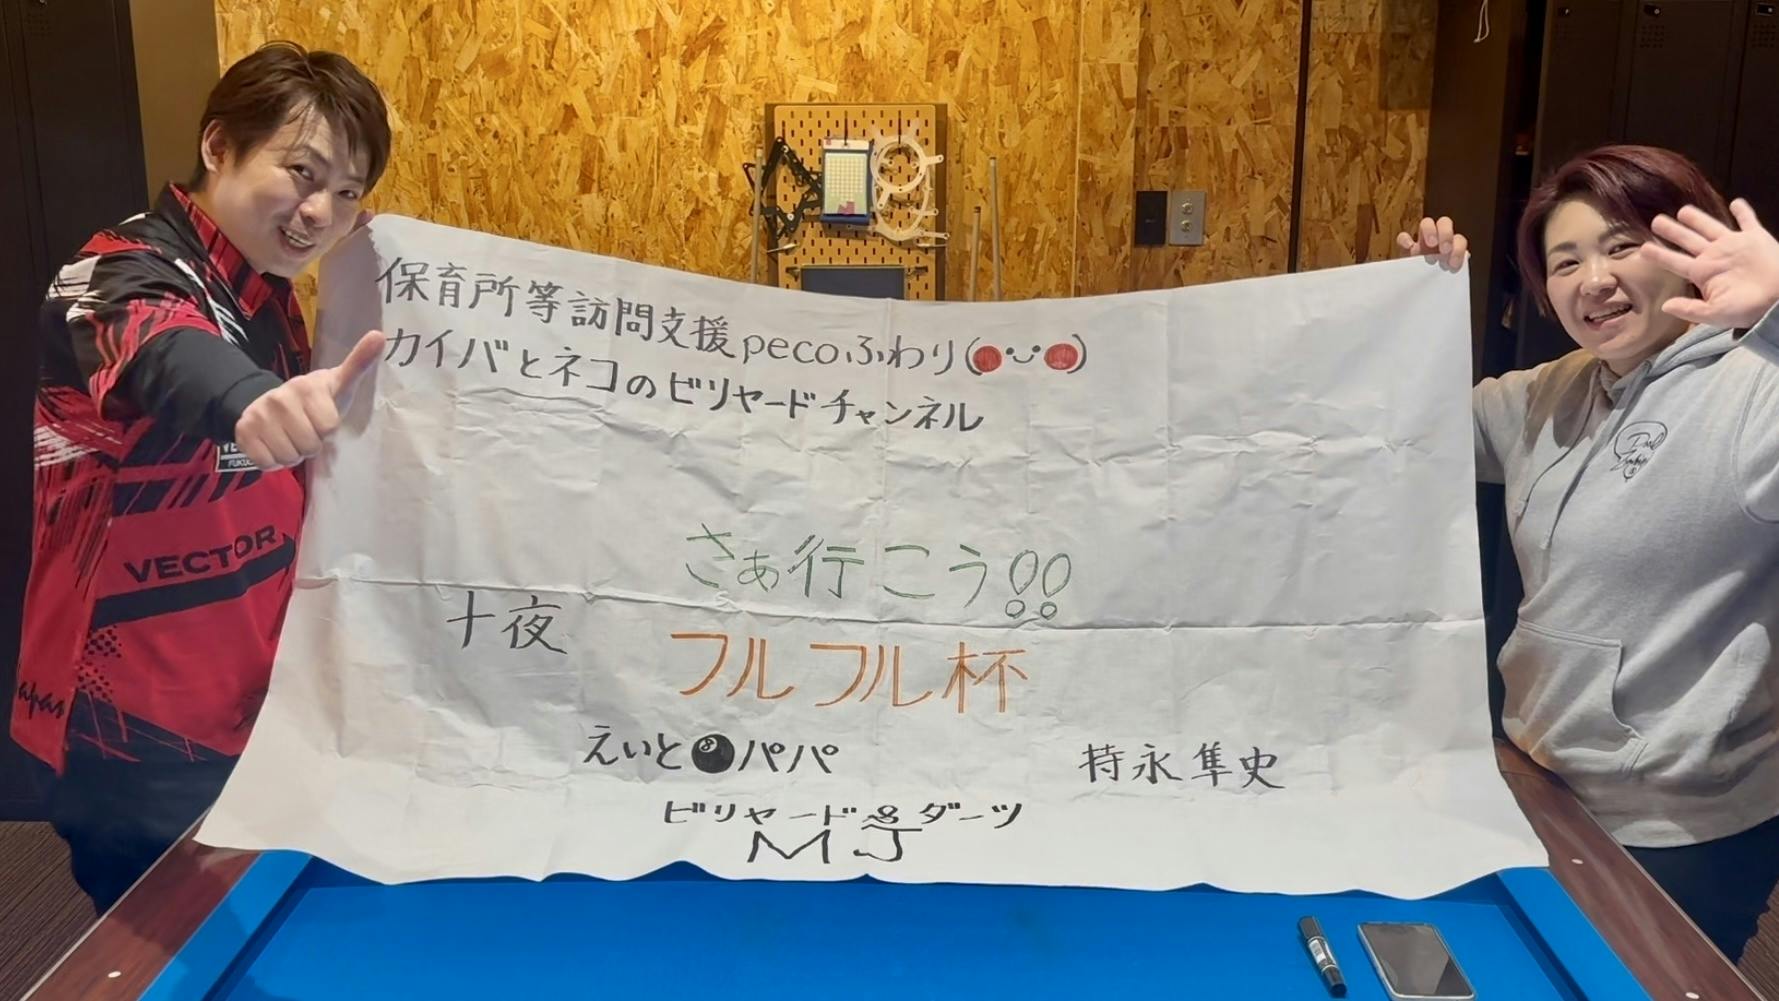 保育所等訪問支援pecoふわり(●・ᴗ・●)
カイバとネコのビリヤードチャンネル
さぁ行こう!!
十夜
フルフル杯
えいと🎱パパ
持永隼史
ビリヤード&ダーツ
MJ
VECTOR